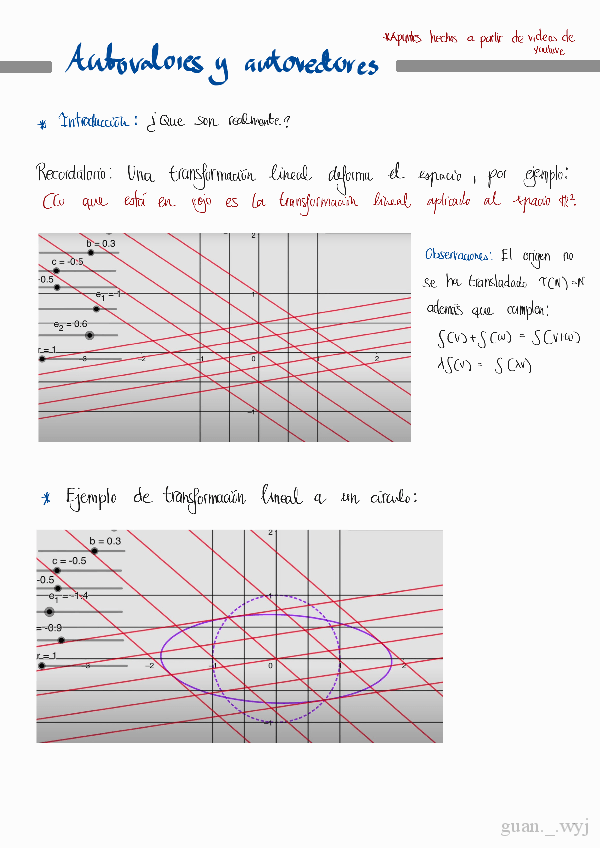 *Apuntes hechos a partir de videos de
youtube
Autovalores y autovectores
* Introducción: ¿Que son realmente?
Recordatorio: Una transformación lineal deforma el espacio, por ejemplo:
(Lo que está en rojo es la transformación lineal aplicado al espacio ℝ².
b = 0.3
c = -0.5
-0.5
e₁ = 1
e₂ = 0.6
r = 1
-3 -2 -1 0 1 2
2
1
-1
Observaciones: El origen no
se ha transladado T(N)=N
además que cumplen:
f(v)+f(w) = f(v+w)
λf(v) = f(λv)
* Ejemplo de transformación lineal a un círculo:
b = 0.3
c = -0.5
-0.5
e₁ = -1.4
= -0.9
r = 1
-3 -2 -1 0 1 2
2
1
-1
guan._.wyj